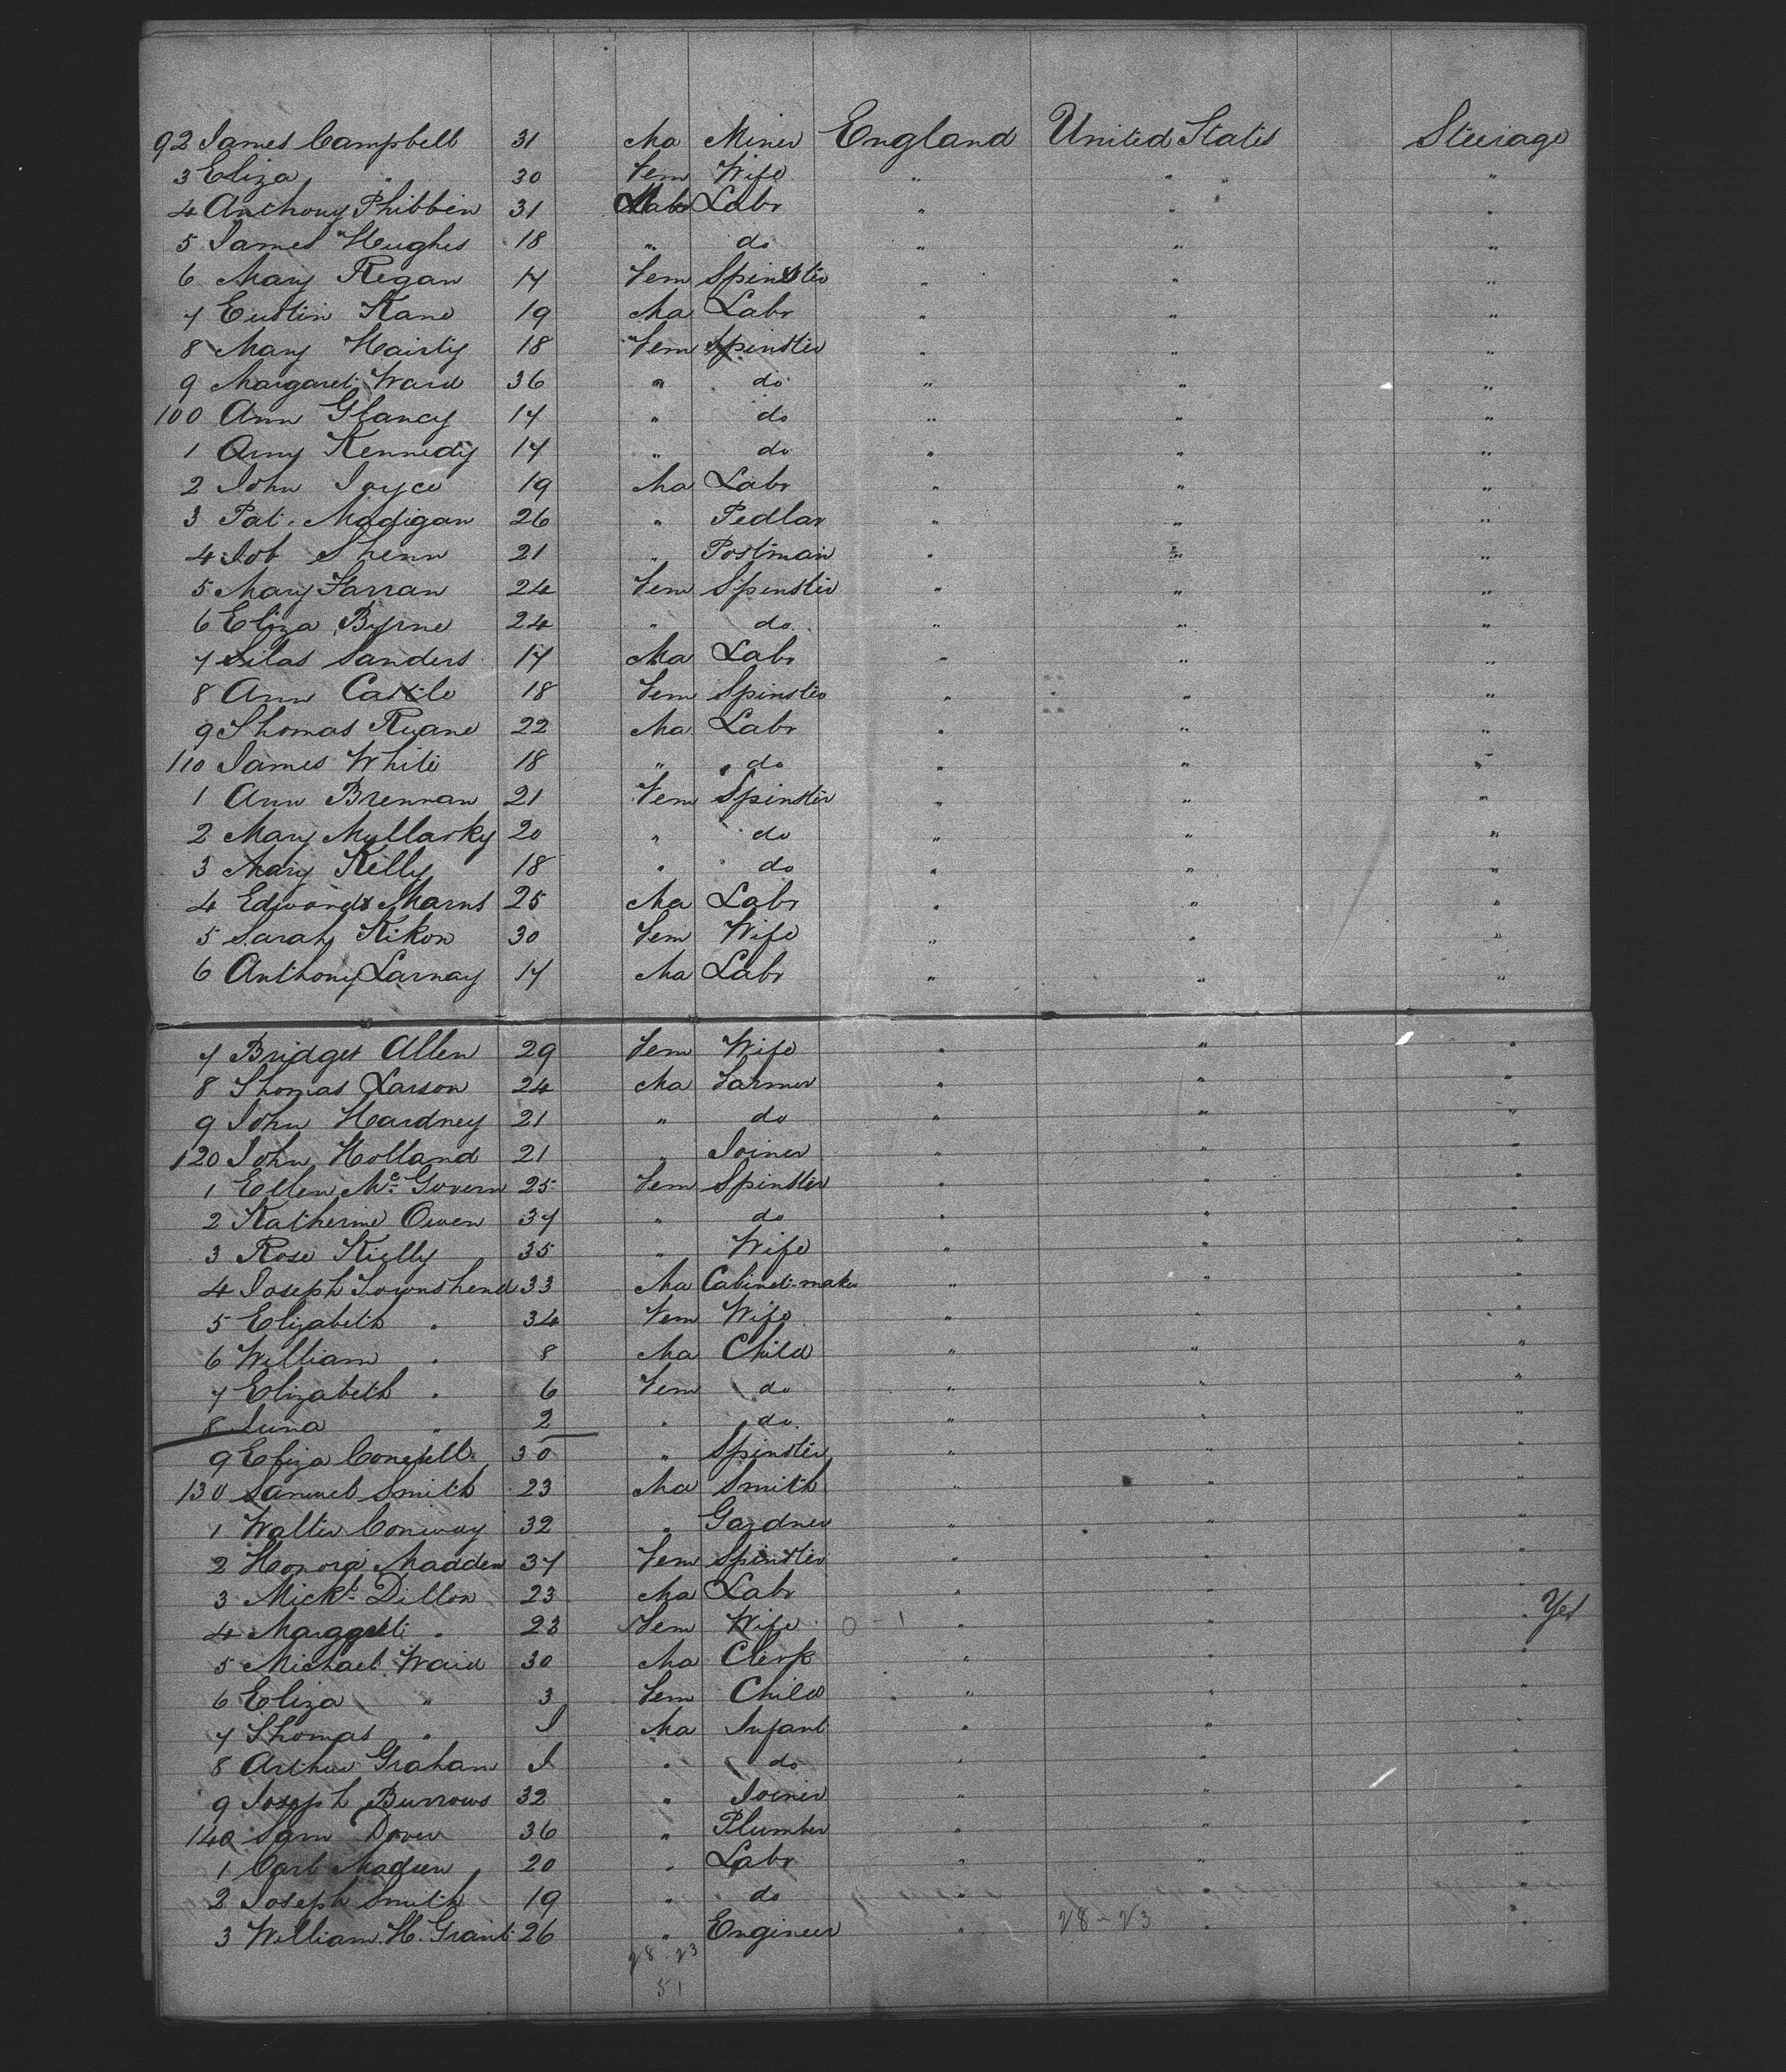 92 James Campbell 31 Ma Miner England United States Steerage
3 Eliza " 30 Fem Wife " " "
4 Anthony Phibbin 31 Labr " " "
5 James Hughes 18 " do " " "
6 Mary Regan 17 Fem Spinster " " "
7 Kane 19 Ma Labr " " "
8 Mary Hairty 18 Fem Spinster " " "
9 Margaret Ward 36 " do " " "
100 Ann Glancy 17 " do " " "
1 Amy Kennedy 17 " do " " "
2 John Joyce 19 Ma Labr " " "
3 Pat. Madigan 26 " Pedlar " " "
4 Job Shenn 21 " Postman " " "
5 Mary Farran 24 Fem Spinster " " "
6 Eliza Byrne 24 " do " " "
7 Silas Sanders 17 Ma Labr " " "
8 Ann Castle 18 Fem Spinster " " "
9 Thomas Ruane 22 Ma Labr " " "
110 James White 18 " do " " "
1 Ann Brennan 21 Fem Spinster " " "
2 Mary Mullarky 20 " do " " "
3 Mary Kelly 18 " do " " "
4 Edward Marns 25 Ma Labr " " "
5 Sarah Kikon 30 Fem Wife " " "
6 Anthony Larnay 17 Ma Labr " " "
7 Bridget Allen 29 Fem Wife " " "
8 Thomas Larson 24 Ma Farmer " " "
9 John Hardney 21 " do " " "
120 John Holland 21 " Joiner " " "
1 Ellen Mc Govern 25 Fem Spinster " " "
2 Katherine Owen 37 " do " " "
3 Rose Kielly 35 " Wife " " "
4 Joseph Townshend 33 Ma Cabinet-maker " " "
5 Elizabeth " 34 Fem Wife " " "
6 William " 8 Ma Child " " "
7 Elizabeth " 6 Fem do " " "
8 " 2 " do " " "
9 Eliza 30 " Spinster " " "
130 Samuel Smith 23 Ma Smith " " "
1 Walter Conway 32 " Gardner " " "
2 Honora Madden 37 Fem Spinster " " "
3 Mickl Dillon 23 Ma Labr " " "
4 " 23 Fem Wife 0-1 " " " Yes
5 Michael Ward 30 Ma Clerk " " "
6 Eliza " 3 Fem Child " " "
7 Thomas " I Ma Infant " " "
8 Arthur Graham I " do " " "
9 Joseph Burrows 32 " Joiner " " "
140 Sam Dover 36 " Plumber " " "
1 Carl Madsen 20 " Labr " " "
2 Joseph Smith 19 " do " " "
3 William H. Grant 26 " Engineer " 28-23 " "
28-23
51